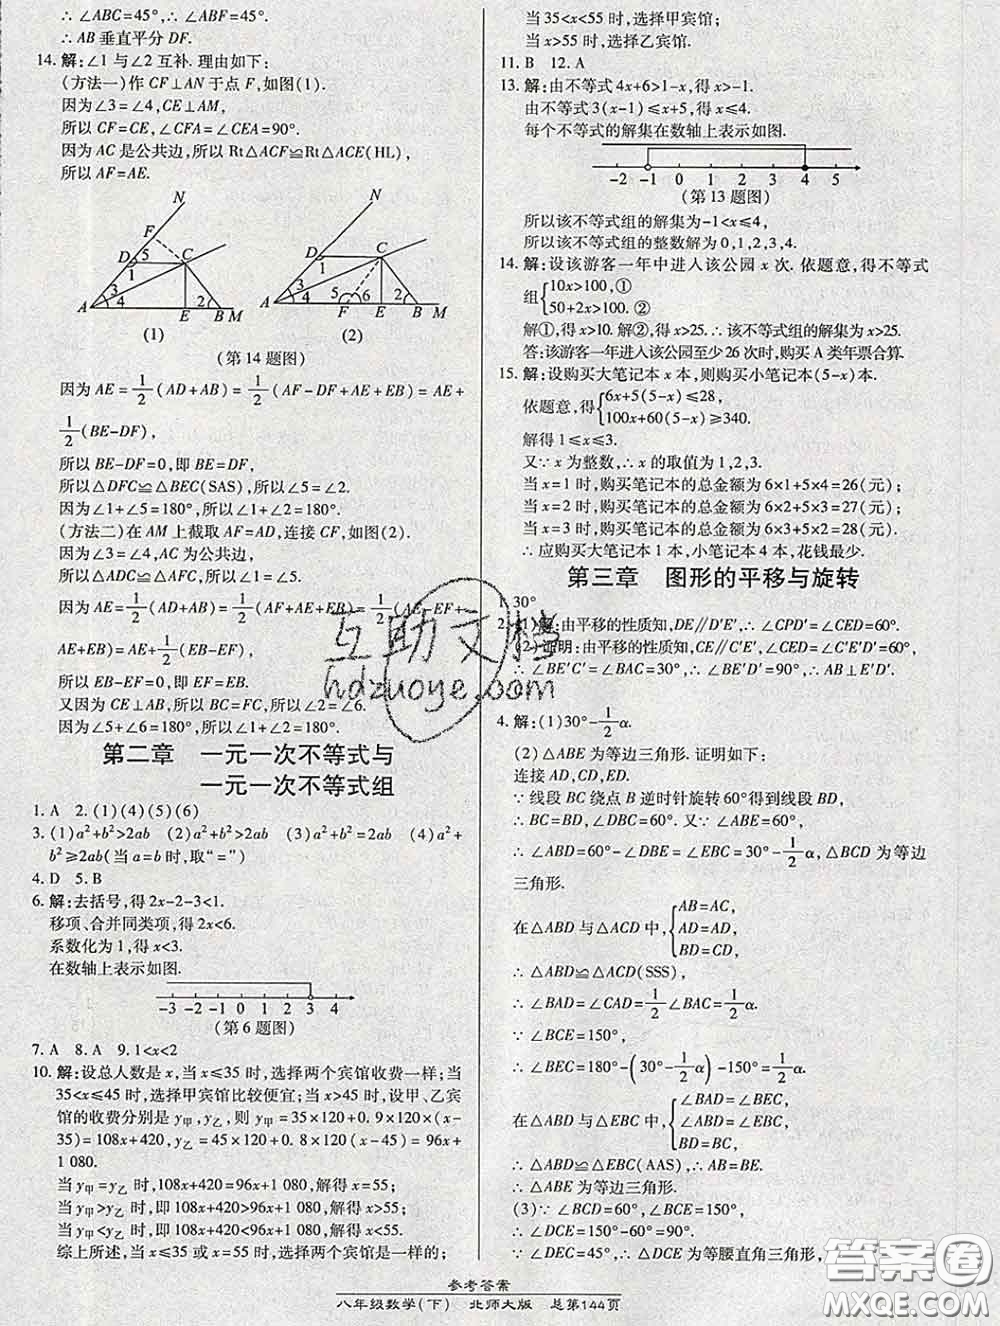 ∴ ∠ABC=45°,∴ ∠ABF=45°.
∴ AB 垂直平分 DF.
14. 解:∠1 与∠2 互补. 理由如下:
(方法一)作 CF⊥AN 于点 F,如图(1).
因为∠3=∠4,CE⊥AM,
所以 CF=CE,∠CFA=∠CEA=90°.
因为 AC 是公共边,所以 Rt△ACF≌Rt△ACE(HL),
所以 AF=AE.
N
F
D 5 C
1
3
4
A
2
E B M
(1)
N
D C
1
3
4
A
5 6 2
F E B M
(2)
(第 14 题图)
因为 AE=1/2(AD+AB)=1/2(AF-DF+AE+EB)=AE+
1/2(BE-DF),
所以 BE-DF=0,即 BE=DF,
所以△DFC≌△BEC(SAS),所以∠5=∠2.
因为∠1+∠5=180°,所以∠1+∠2=180°.
(方法二)在 AM 上截取 AF=AD,连接 CF,如图(2).
因为∠3=∠4,AC 为公共边,
所以△ADC≌△AFC,所以∠1=∠5.
因为 AE=1/2(AD+AB)=1/2(AF+AE+EB)=1/2(AE-EF+
AE+EB)=AE+1/2(EB-EF),
所以 EB-EF=0,即 EF=EB.
又因为 CE⊥AB,所以 BC=FC,所以∠2=∠6.
因为∠5+∠6=180°,所以∠1+∠2=180°.
第二章 一元一次不等式与
一元一次不等式组
1. A 2. (1)(4)(5)(6)
3. (1)a²+b²>2ab (2)a²+b²>2ab (3)a²+b²=2ab (4)a²+
b²≥2ab(当 a=b 时,取"=")
4. D 5. B
6. 解:去括号,得 2x-2-3<1.
移项、合并同类项,得 2x<6.
系数化为 1,得 x<3.
在数轴上表示如图.
-3 -2 -1 0 1 2 3 4
(第 6 题图)
7. A 8. A 9. 1<x<2
10. 解:设总人数是 x,当 x≤35 时,选择两个宾馆收费一样;当
35<x≤45 时,选择甲宾馆比较便宜;当 x>45 时,设甲、乙宾
馆的收费分别是 y甲,y乙,则 y甲=35×120+0.9×120×(x-
35)=108x+420,y乙=45×120+0.8×120(x-45)=96x+
1 080.
当 y甲=y乙 时,108x+420=96x+1 080,解得 x=55;
当 y甲>y乙 时,即 108x+420>96x+1 080,解得 x>55;
当 y甲<y乙 时,即 108x+420<96x+1 080,解得 x<55.
综上所述,当 x≤35 或 x=55 时,选择两个宾馆是一样的;
当 35<x<55 时,选择甲宾馆;
当 x>55 时,选择乙宾馆.
11. B 12. A
13. 解:由不等式 4x+6>1-x,得 x>-1.
由不等式 3(x-1)≤x+5,得 x≤4.
每个不等式的解集在数轴上表示如图.
-2 -1 0 1 2 3 4 5
(第 13 题图)
所以该不等式组的解集为-1<x≤4,
所以该不等式组的整数解为 0,1,2,3,4.
14. 解:设该游客一年中进入该公园 x 次. 依题意,得不等式
组{10x>100,①
50+2x>100. ②
解①,得 x>10. 解②,得 x>25. ∴ 该不等式组的解集为 x>25.
答:该游客一年进入该公园至少 26 次时,购买 A 类年票合算.
15. 解:设购买大笔记本 x 本,则购买小笔记本(5-x)本.
依题意,得{6x+5(5-x)≤28,
100x+60(5-x)≥340.
解得 1≤x≤3.
又∵ x 为整数,∴ x 的取值为 1,2,3.
当 x=1 时,购买笔记本的总金额为 6×1+5×4=26(元);
当 x=2 时,购买笔记本的总金额为 6×2+5×3=27(元);
当 x=3 时,购买笔记本的总金额为 6×3+5×2=28(元).
∴ 应购买大笔记本 1 本,小笔记本 4 本,花钱最少.
第三章 图形的平移与旋转
1. 30°
2. (1)解:由平移的性质知,DE∥D′E′,∴ ∠CPD′=∠CED=60°.
(2)证明:由平移的性质知,CE∥C′E′,∠C′E′D′=60°,
∴ ∠BE′C′=∠BAC=30°,∴ ∠BE′D′=90°,∴ AB⊥E′D′.
4. 解:(1)30°-1/2α.
(2)△ABE 为等边三角形. 证明如下:
连接 AD,CD,ED.
∵ 线段 BC 绕点 B 逆时针旋转 60°得到线段 BD,
∴ BC=BD,∠DBC=60°. 又∵ ∠ABE=60°,
∴ ∠ABD=60°-∠DBE=∠EBC=30°-1/2α,△BCD 为等边
三角形.
在△ABD 与△ACD 中,{AB=AC,
AD=AD,
BD=CD,
∴ △ABD≌△ACD(SSS),
∴ ∠BAD=∠CAD=1/2∠BAC=1/2α.
∵ ∠BCE=150°,
∴ ∠BEC=180°-(30°-1/2α)-150°=1/2α.
在△ABD 与△EBC 中,{∠BAD=∠BEC,
∠ABD=∠EBC,
BD=BC,
∴ △ABD≌△EBC(AAS),∴ AB=BE.
∴ △ABE 为等边三角形.
(3)∵ ∠BCD=60°,∠BCE=150°,
∴ ∠DCE=150°-60°=90°.
∵ ∠DEC=45°,∴ △DCE 为等腰直角三角形,
参考答案
八年级数学(下) 北师大版 总第144页
互助文档
hdzuoye.com
答案圈
MXQE.COM